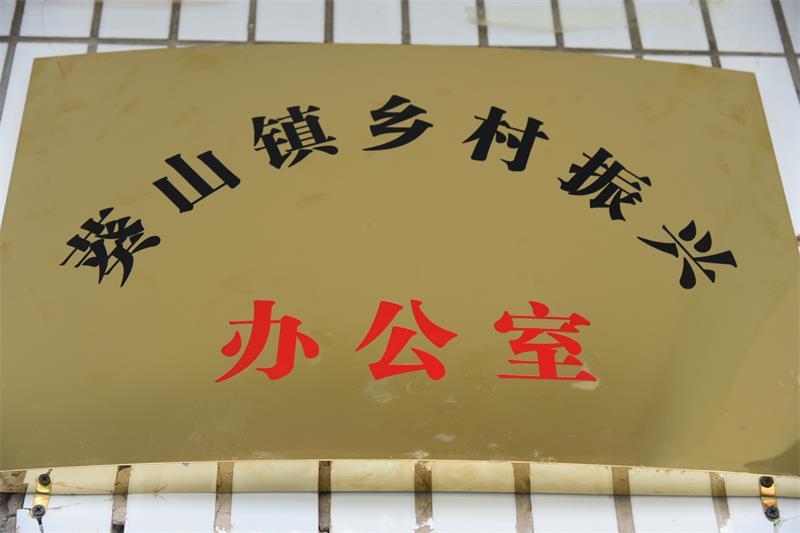 葵山镇乡村振兴
办公室